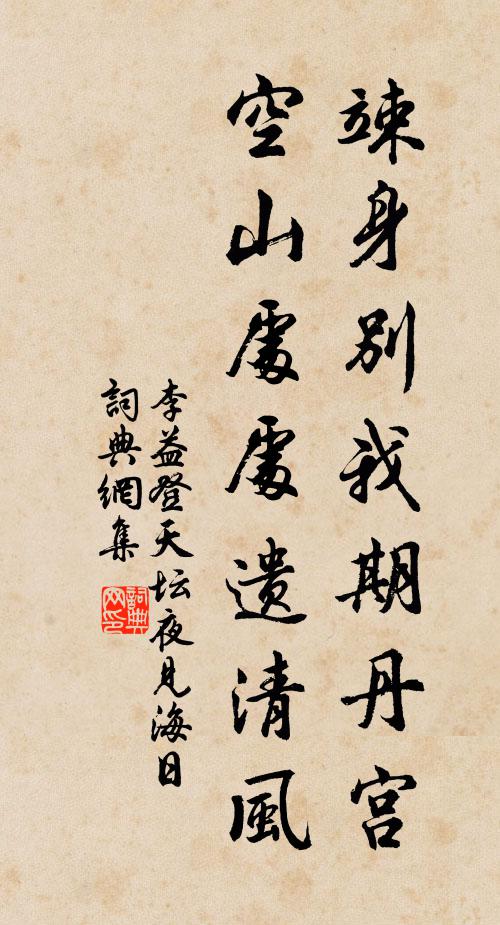 竦身別我期丹宮
空山處處遺清風
李益登天坛夜見海日
詞典網集
詞典
网印